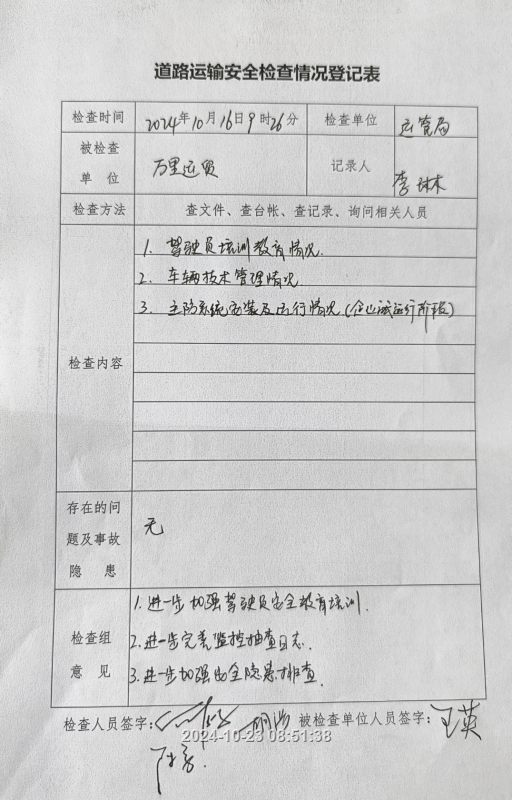 道路运输安全检查情况登记表
检查时间 2024年10月16日9时26分 检查单位 运管局
被检查单位 万里运贸 记录人 李琳
检查方法 查文件、查台帐、查记录、询问相关人员
检查内容
1. 驾驶员培训教育情况.
2. 车辆技术管理情况
3. 主防系统安装及运行情况(企业试运行阶段)
存在的问
题及事故
隐 患
无
检查组
意 见
1.进一步加强驾驶员安全教育培训.
2.进一步完善监控抽查日志.
3.进一步加强安全隐患排查.
检查人员签字: 被检查单位人员签字: 王英
2024-10-23 08:51:38